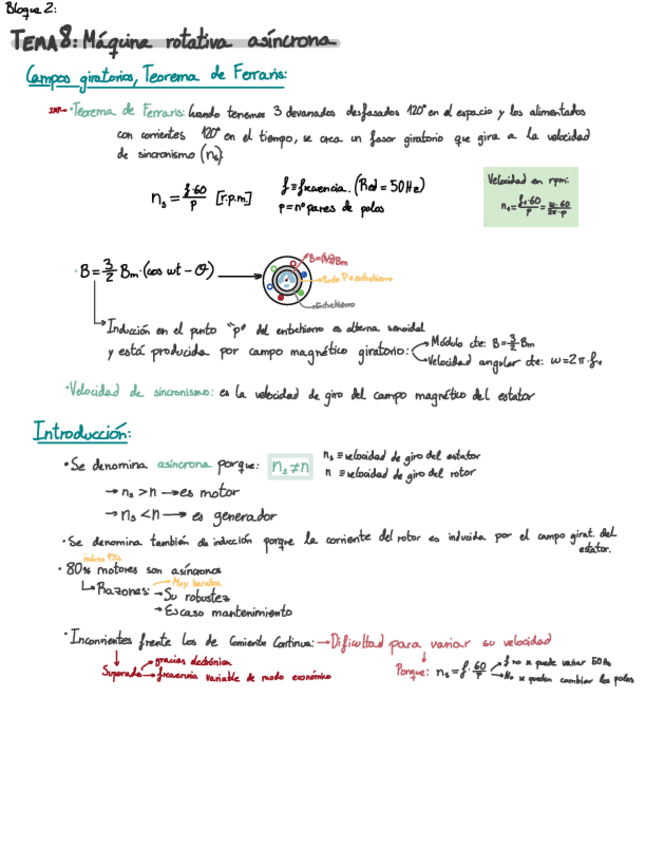 Bloque 2:
TEMA 8: Máquina rotativa asíncrona
Campos giratorios, Teorema de Ferraris:
IMP→ · Teorema de Ferraris: Cuando tenemos 3 devanados desfasados 120° en el espacio y los alimentados
con corrientes 120° en el tiempo, se crea un fasor giratorio que gira a la velocidad
de sincronismo (ns):
ns = f·60/P [r.p.m.]
f ≡ frecuencia. (Red = 50Hz)
P = nº pares de polos
Velocidad en rpm:
n1 = f1·60/P = w·60/2π·P
B = 3/2 Bm · (cos wt - θ)
B=(3/2)Bm
Punto P entrehierro
Entrehierro
Inducción en el punto "p" del entrehierro es alterna senoidal
y está producida por campo magnético giratorio:
Módulo cte: B = 3/2 Bm
Velocidad angular cte: w = 2π·f1
· Velocidad de sincronismo: es la velocidad de giro del campo magnético del estator
Introducción:
· Se denomina asíncrona porque: ns ≠ n
ns ≡ velocidad de giro del estator
n ≡ velocidad de giro del rotor
→ ns > n → es motor
→ ns < n → es generador
· Se denomina también de inducción porque la corriente del rotor es inducida por el campo girat. del
estator.
· 80% motores son asíncronos
Razones: → Su robustez
→ Muy baratos
→ Escaso mantenimiento
· Inconvientes frente los de Corriente Continua: → Dificultad para variar su velocidad
Superado → gracias electrónica
→ frecuencia variable de modo económico
Porque: ns = f·60/P
→ f no se puede variar 50Hz
→ No se pueden cambiar los polos